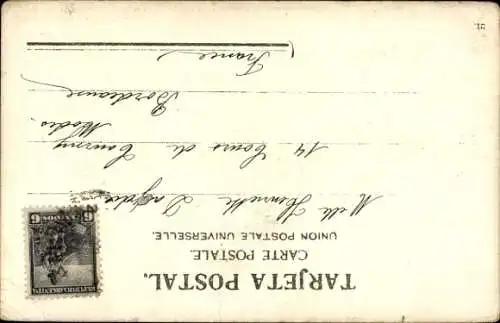 TARJETA POSTAL.
CARTE POSTALE.
UNION POSTALE UNIVERSELLE.
Mlle Henriette
14 Cours de Tourny
Modes.
Bordeaux
France
REPUBLICA ARGENTINA
6 CENTAVOS 6